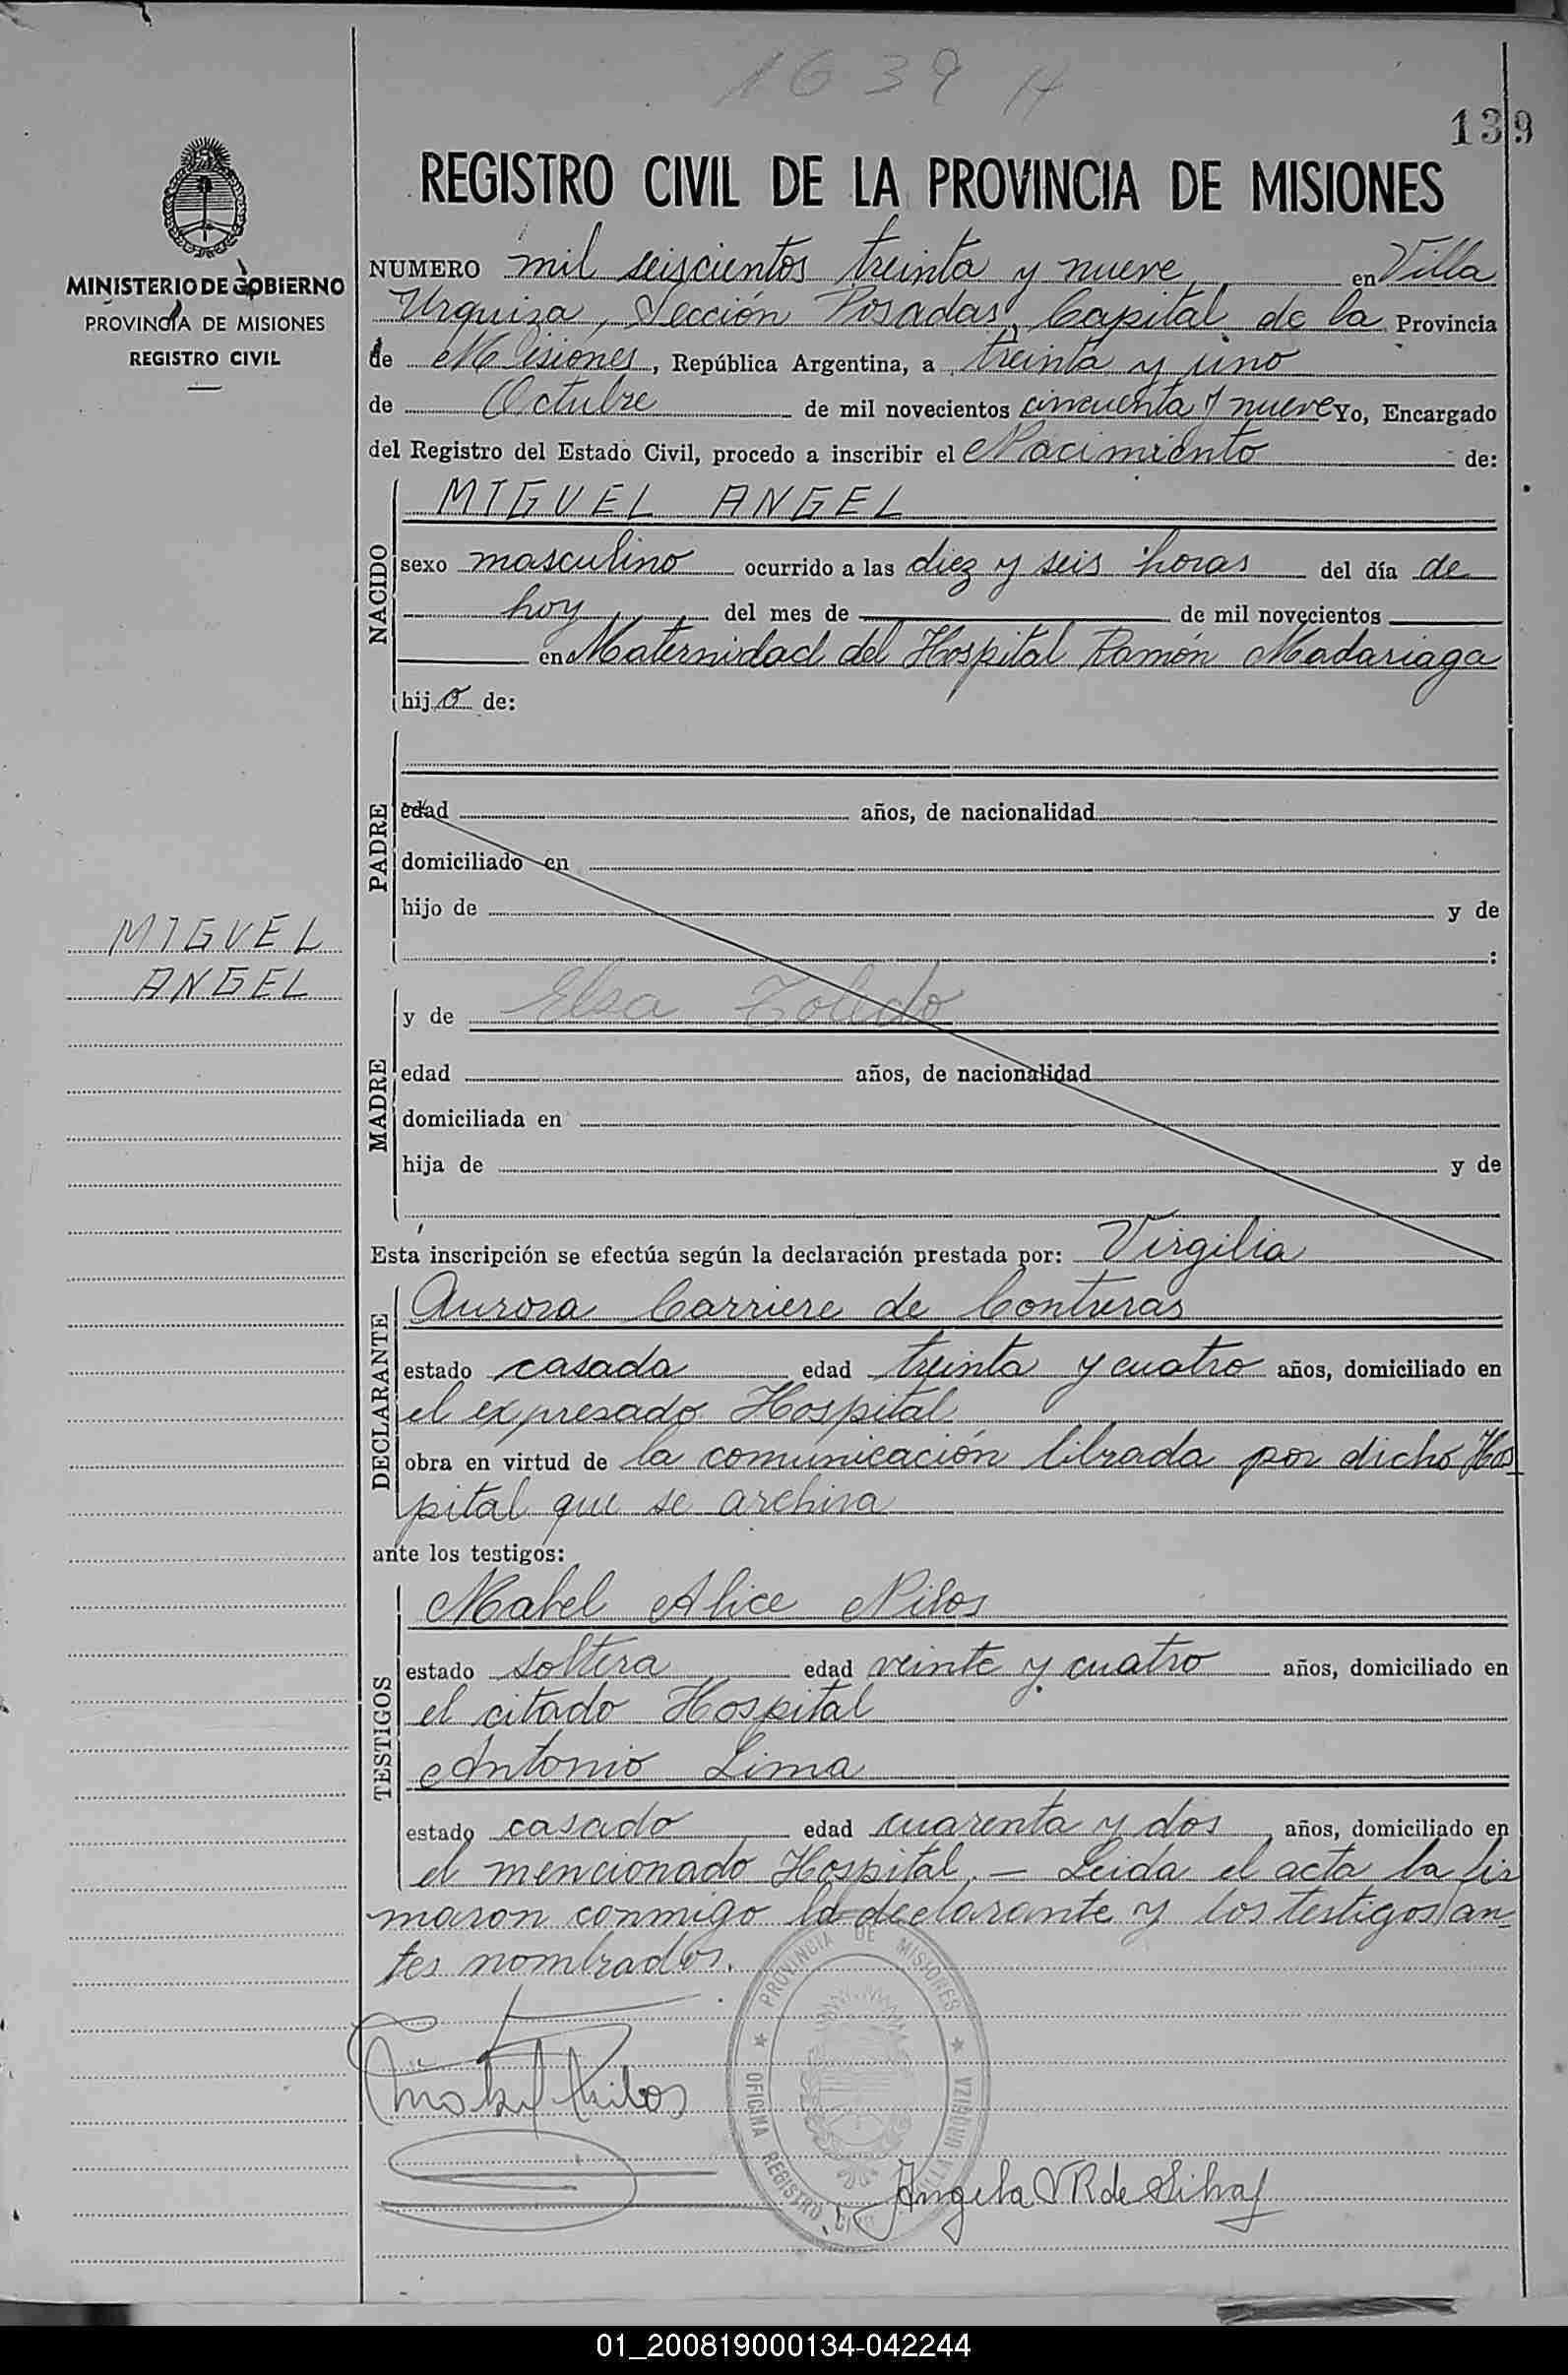 1639 H
139
REGISTRO CIVIL DE LA PROVINCIA DE MISIONES
MINISTERIO DE GOBIERNO
PROVINCIA DE MISIONES
REGISTRO CIVIL
NUMERO mil seiscientos treinta y nueve en Villa
Urquiza, Sección Posadas, Capital de la Provincia
de Misiones, República Argentina, a treinta y uno
de Octubre de mil novecientos cincuenta y nueve Yo, Encargado
del Registro del Estado Civil, procedo a inscribir el Nacimiento de:
NACIDO
MIGUEL ANGEL
sexo masculino ocurrido a las diez y seis horas del día de
hoy del mes de de mil novecientos
en Maternidad del Hospital Ramón Madariaga
hijo de:
PADRE
edad años, de nacionalidad
domiciliado en
hijo de y de
:
MIGUEL
ANGEL
MADRE
y de Elsa Toledo
edad años, de nacionalidad
domiciliada en
hija de y de
Esta inscripción se efectúa según la declaración prestada por: Virgilia
DECLARANTE
Aurora Carriere de Contreras
estado casada edad treinta y cuatro años, domiciliado en
el expresado Hospital
obra en virtud de la comunicación librada por dicho Hos
pital que se archiva
ante los testigos:
TESTIGOS
Mabel Alice Nilos
estado soltera edad veinte y cuatro años, domiciliado en
el citado Hospital
Antonio Lima
estado casado edad cuarenta y dos años, domiciliado en
el mencionado Hospital. — Leida el acta la fir
maron conmigo la declarante y los testigos an-
tes nombrados.
PROVINCIA DE MISIONES
OFICINA REGISTRO CIVIL VILLA URQUIZA
Angela V R de Silva
01_200819000134-042244